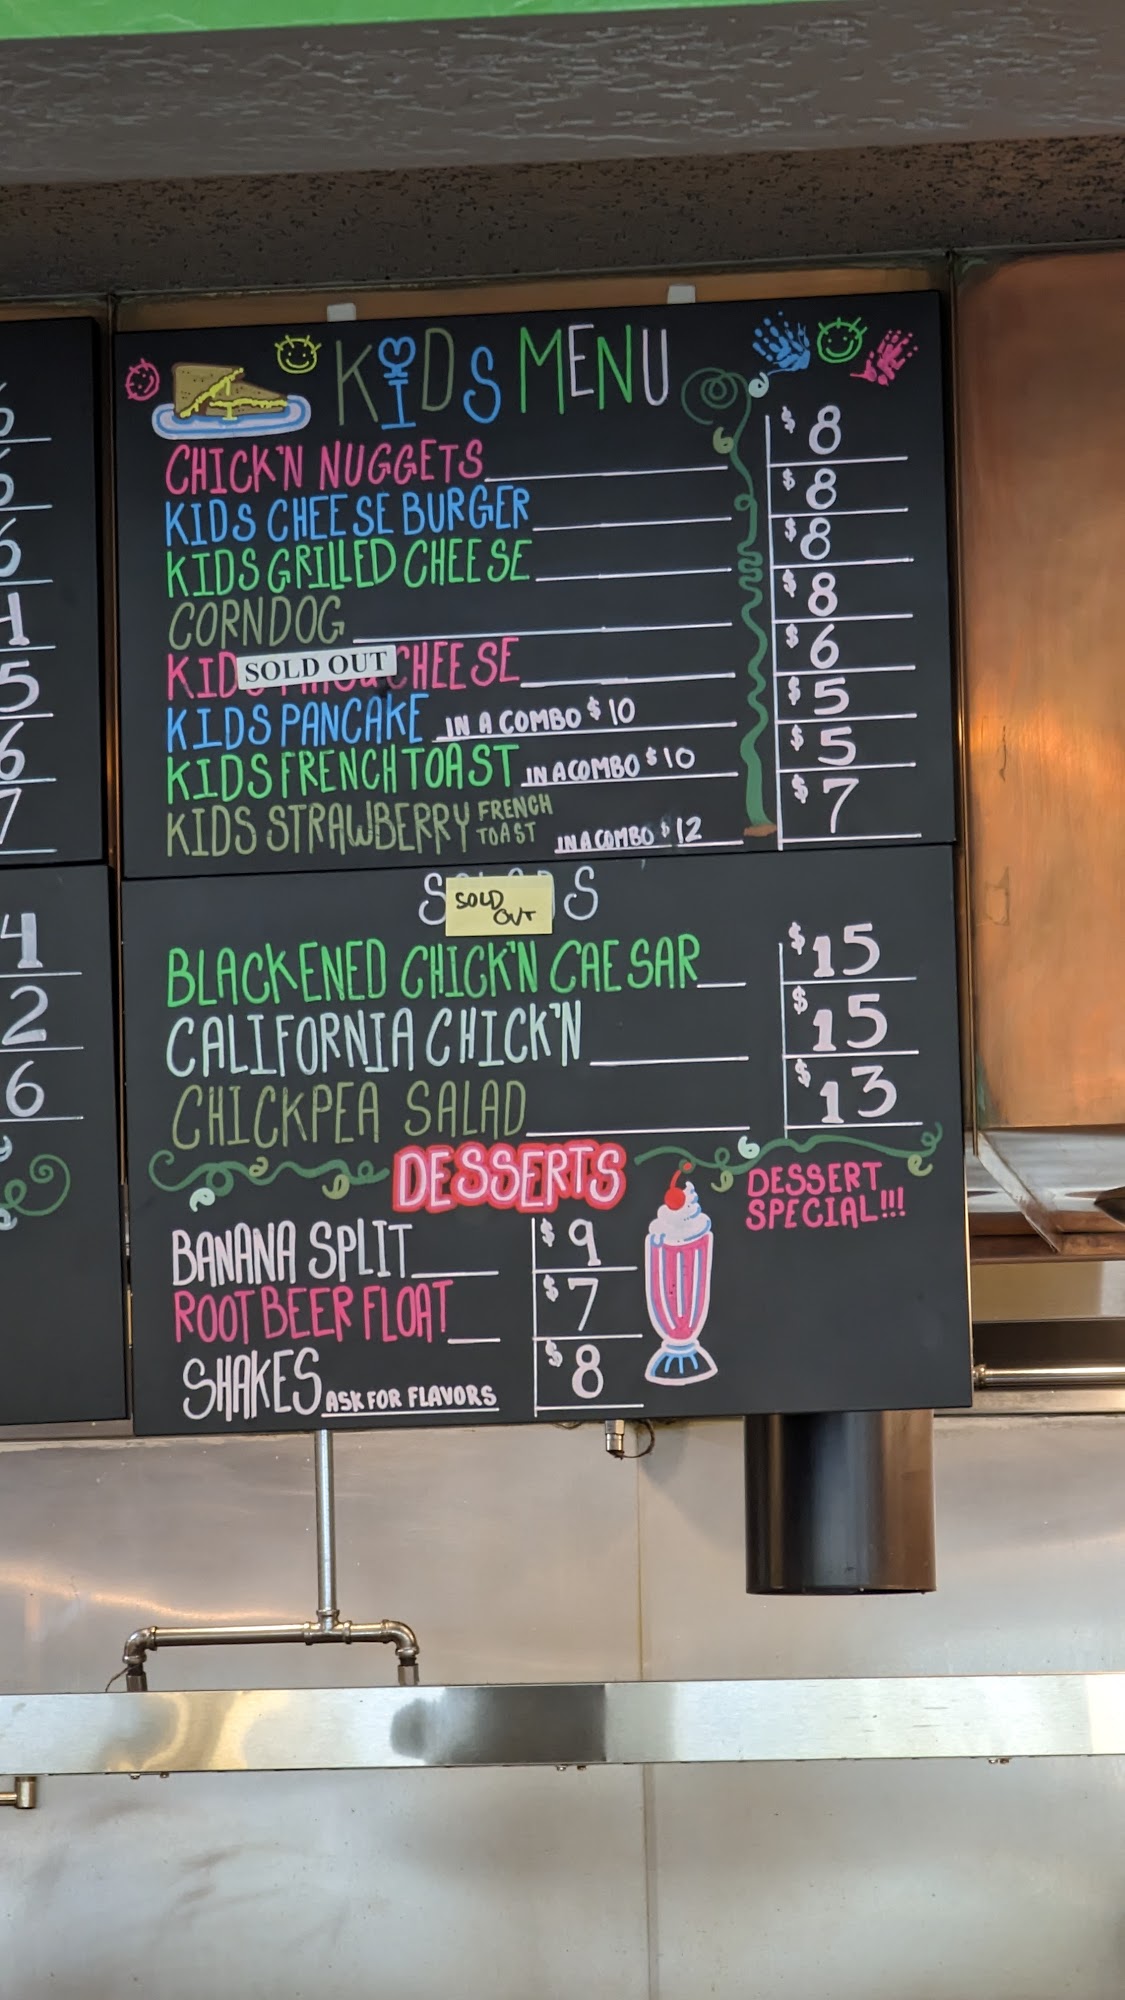 KIDS MENU
CHICK'N NUGGETS $8
KIDS CHEESE BURGER $8
KIDS GRILLED CHEESE $8
CORNDOG $8
KID SOLD OUT CHEESE $6
KIDS PANCAKE IN A COMBO $10 $5
KIDS FRENCH TOAST IN A COMBO $10 $5
KIDS STRAWBERRY FRENCH TOAST IN A COMBO $12 $7
SOLD OUT
BLACKENED CHICK'N CAESAR $15
CALIFORNIA CHICK'N $15
CHICKPEA SALAD $13
DESSERTS
BANANA SPLIT $9
ROOT BEER FLOAT $7
SHAKES ASK FOR FLAVORS $8
DESSERT
SPECIAL!!!
5
6
7
4
2
6